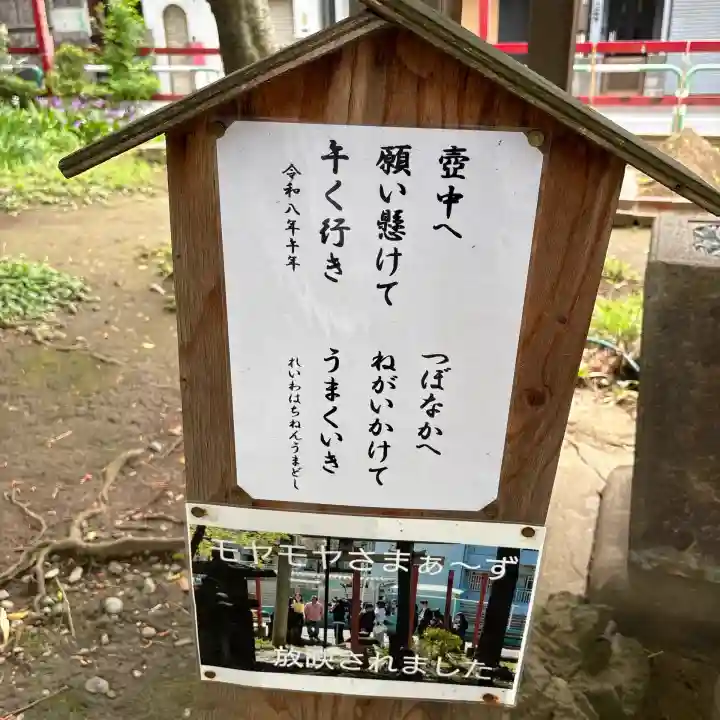 壺中へ
願い懸けて
午く行き
令和八年午年
つぼなかへ
ねがいかけて
うまくいき
れいわはちねんうまどし
モヤモヤさまぁ～ず
放映されました